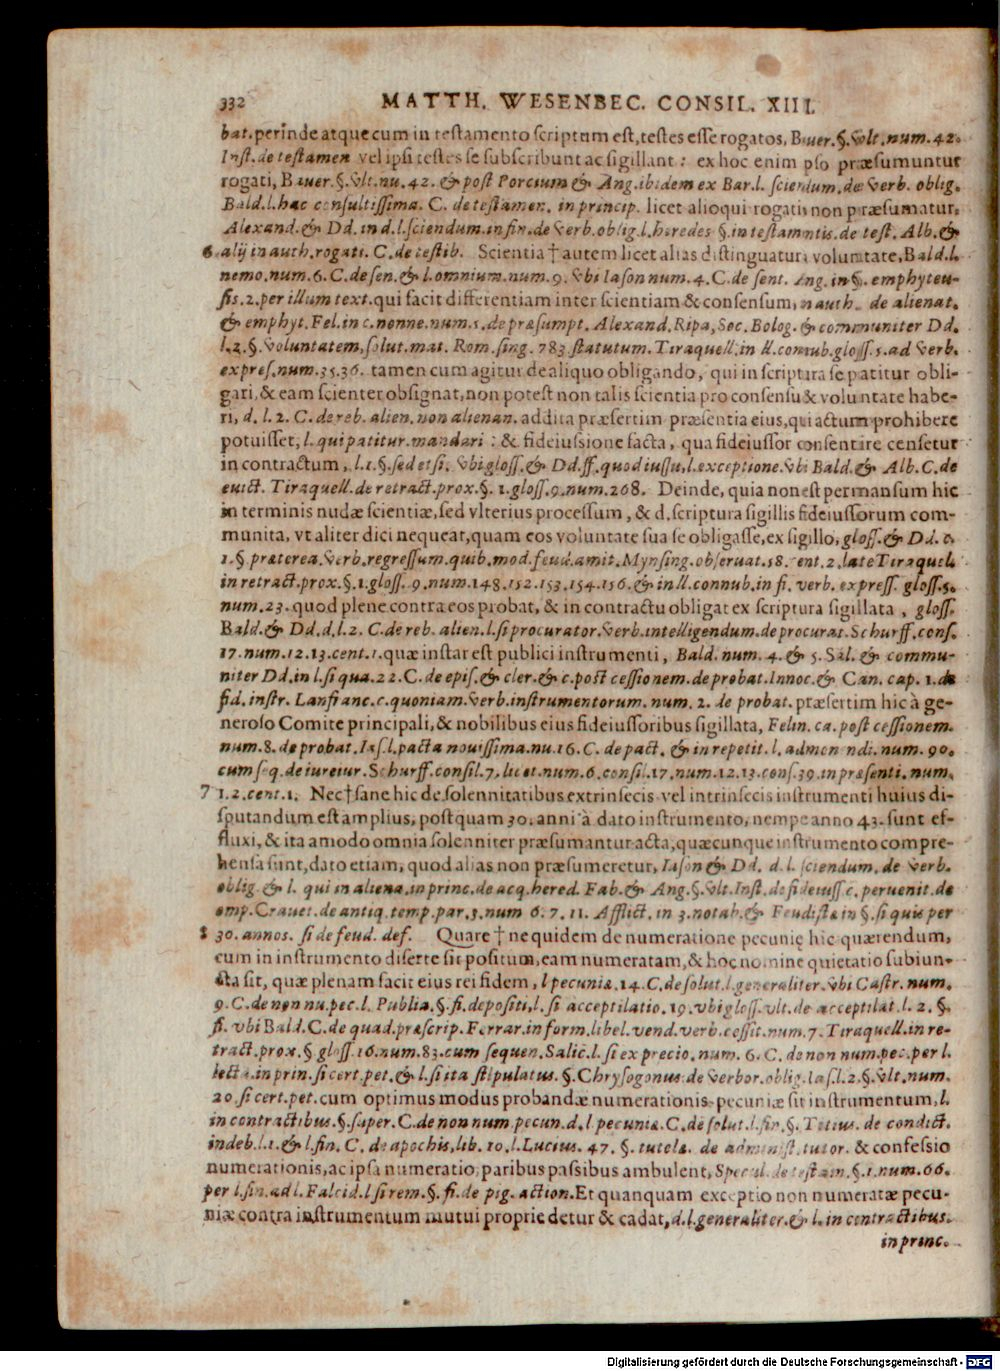 332 MATTH. WESENBEC. CONSIL. XIII.
bat. perinde atque cum in testamento scriptum est, testes esse rogatos, Bauer. §. vlt. num. 42.
Inst. de testamen vel ipsi testes se subscribunt ac sigillant: ex hoc enim ipso præsumuntur
rogati, Bauer. §. vlt. nu. 42. & post Porcium & Ang. ibidem ex Bar. l. sciendum. de verb. oblig.
Bald. l. hac consultissima. C. de testamen. in princip. licet alioqui rogati non præsumatur.
Alexand. & Dd. in d. l. sciendum. in fin. de verb. oblig. l. heredes §. in testamentis. de test. Alb. &
6 alij in auth. rogati. C. de testib. Scientia † autem licet alias distinguatur à voluntate, Bald. l.
nemo. num. 6. C. de sen. & l. omnium. num. 9. vbi Iason num. 4. C. de sent. Ang. in §. emphyteu-
sis. 2. per illum text. qui facit differentiam inter scientiam & consensum, in auth. de alienat.
& emphyt. Fel. in c. nonne. num. 5. de præsumpt. Alexand. Ripa, Soc. Bolog. & communiter Dd.
l. 2. §. voluntatem, solut. mat. Rom. sing. 783 statutum. Tiraquell. in ll. connub. gloss. 5. ad verb.
expres. num. 35. 36. tamen cum agitur de aliquo obligando, qui in scriptura se patitur obli-
gari, & eam scienter obsignat, non potest non talis scientia pro consensu & voluntate habe-
ri, d. l. 2. C. de reb. alien. non alienan. addita præsertim præsentia eius, qui actum prohibere
potuisset, l. qui patitur. mandati: & fideiussione facta, qua fideiussor consentire censetur
in contractum, l. 1. §. sed et si. vbi gloss. & Dd. ff. quod iussu, l. exceptione. vbi Bald. & Alb. C. de
euict. Tiraquell. de retract. prox. §. 1. gloss. 9. num. 268. Deinde, quia non est permansum hic
in terminis nudæ scientiæ, sed vlterius processum, & d. scriptura sigillis fideiussorum com-
munita, vt aliter dici nequeat, quam eos voluntate sua se obligasse, ex sigillo, gloss. & Dd. c.
1. §. præterea. verb. regressum. quib. mod. feud. amit. Mynsing. obseruat. 18. cent. 2. late Tiraquel.
in retract. prox. §. 1. gloss. 9. num. 148. 152. 153. 154. 156. & in ll. connub. in fi. verb. express. gloss. 5.
num. 23. quod plene contra eos probat, & in contractu obligat ex scriptura sigillata, gloss.
Bald. & Dd. d. l. 2. C. de reb. alien. l. si procurator. verb. intelligendum. de procurat. Schurff. cons.
17. num. 12. 13. cent. 1. quæ instar est publici instrumenti, Bald. num. 4. & 5. Sal. & commu-
niter Dd. in l. si qua. 22. C. de epis. & cler. & c. post cessionem. de probat. Innoc. & Can. cap. 1. de
fid. instr. Lanfranc. c. quoniam. verb. instrumentorum. num. 2. de probat. præsertim hic à ge-
neroso Comite principali, & nobilibus eius fideiussoribus sigillata, Felin. ca. post cessionem.
num. 8. de probat. Ias. l. pacta nouissima. nu. 16. C. de pact. & in repetit. l. admonendi. num. 90.
cum seq. de iureiur. Schurff. consil. 7. licet. num. 6. consil. 17. num. 12. 13. cons. 39. in præsenti. num.
7 1. 2. cent. 1. Nec † sane hic de solennitatibus extrinsecis vel intrinsecis instrumenti huius di-
sputandum est amplius, postquam 30. anni à dato instrumento, nempe anno 43. sunt ef-
fluxi, & ita amodo omnia solenniter præsumantur acta, quæcunque instrumento compre-
hensa sunt, dato etiam, quod alias non præsumeretur, Iason & Dd. d. l. sciendum. de verb.
oblig. & l. qui in aliena. in princ. de acq. hered. Fab. & Ang. §. vlt. Inst. de fideiuss. c. peruenit. de
emp. Crauet. de antiq. temp. par. 3. num 6. 7. 11. Afflict. in 3. notab. & Feudistæ in §. si quis per
8 30. annos. si de feud. def. Quare † ne quidem de numeratione pecunię hic quærendum,
cum in instrumento diserte sit positum, eam numeratam, & hoc nomine quietatio subiun-
cta sit, quæ plenam facit eius rei fidem, l pecuniæ. 14. C. de solut. l. generaliter. vbi Castr. num.
9. C. de non nu. pec. l. Publia. §. fi. depositi, l. si acceptilatio. 19. vbi gloss. vlt. de acceptilat. l. 2. §.
fi. vbi Bald. C. de quad. præscrip. Ferrar. in form. libel. vend. verb. cessit. num. 7. Tiraquell. in re-
tract. prox. § gloss. 16. num. 83. cum sequen. Salic. l. si ex precio. num. 6. C. de non num. pec. per l.
lecta. in prin. si cert. pet. & l. si ita stipulatus. §. Chrysogonus. de verbor. oblig. Ias. l. 2. §. vlt. num.
20. si cert. pet. cum optimus modus probandæ numerationis pecuniæ sit instrumentum, l.
in contractibus §. super. C. de non num. pecun. d. l pecuniæ. C. de solut. l. fin. §. Titius. de condict.
indeb. l. 1. & l. fin. C. de apochis, lib. 10. l. Lucius. 47. §. tutelæ. de administ. tutor. & confessio
numerationis, ac ipsa numeratio, paribus passibus ambulent, Specul. de testam. §. 1. num. 66.
per l. fin. ad l. Falcid. l si rem. §. fi. de pig. action. Et quanquam exceptio non numeratæ pecu-
niæ contra instrumentum mutui proprie detur & cadat, d. l. generaliter. & l. in contractibus.
in princ.
Digitalisierung gefördert durch die Deutsche Forschungsgemeinschaft - DFG